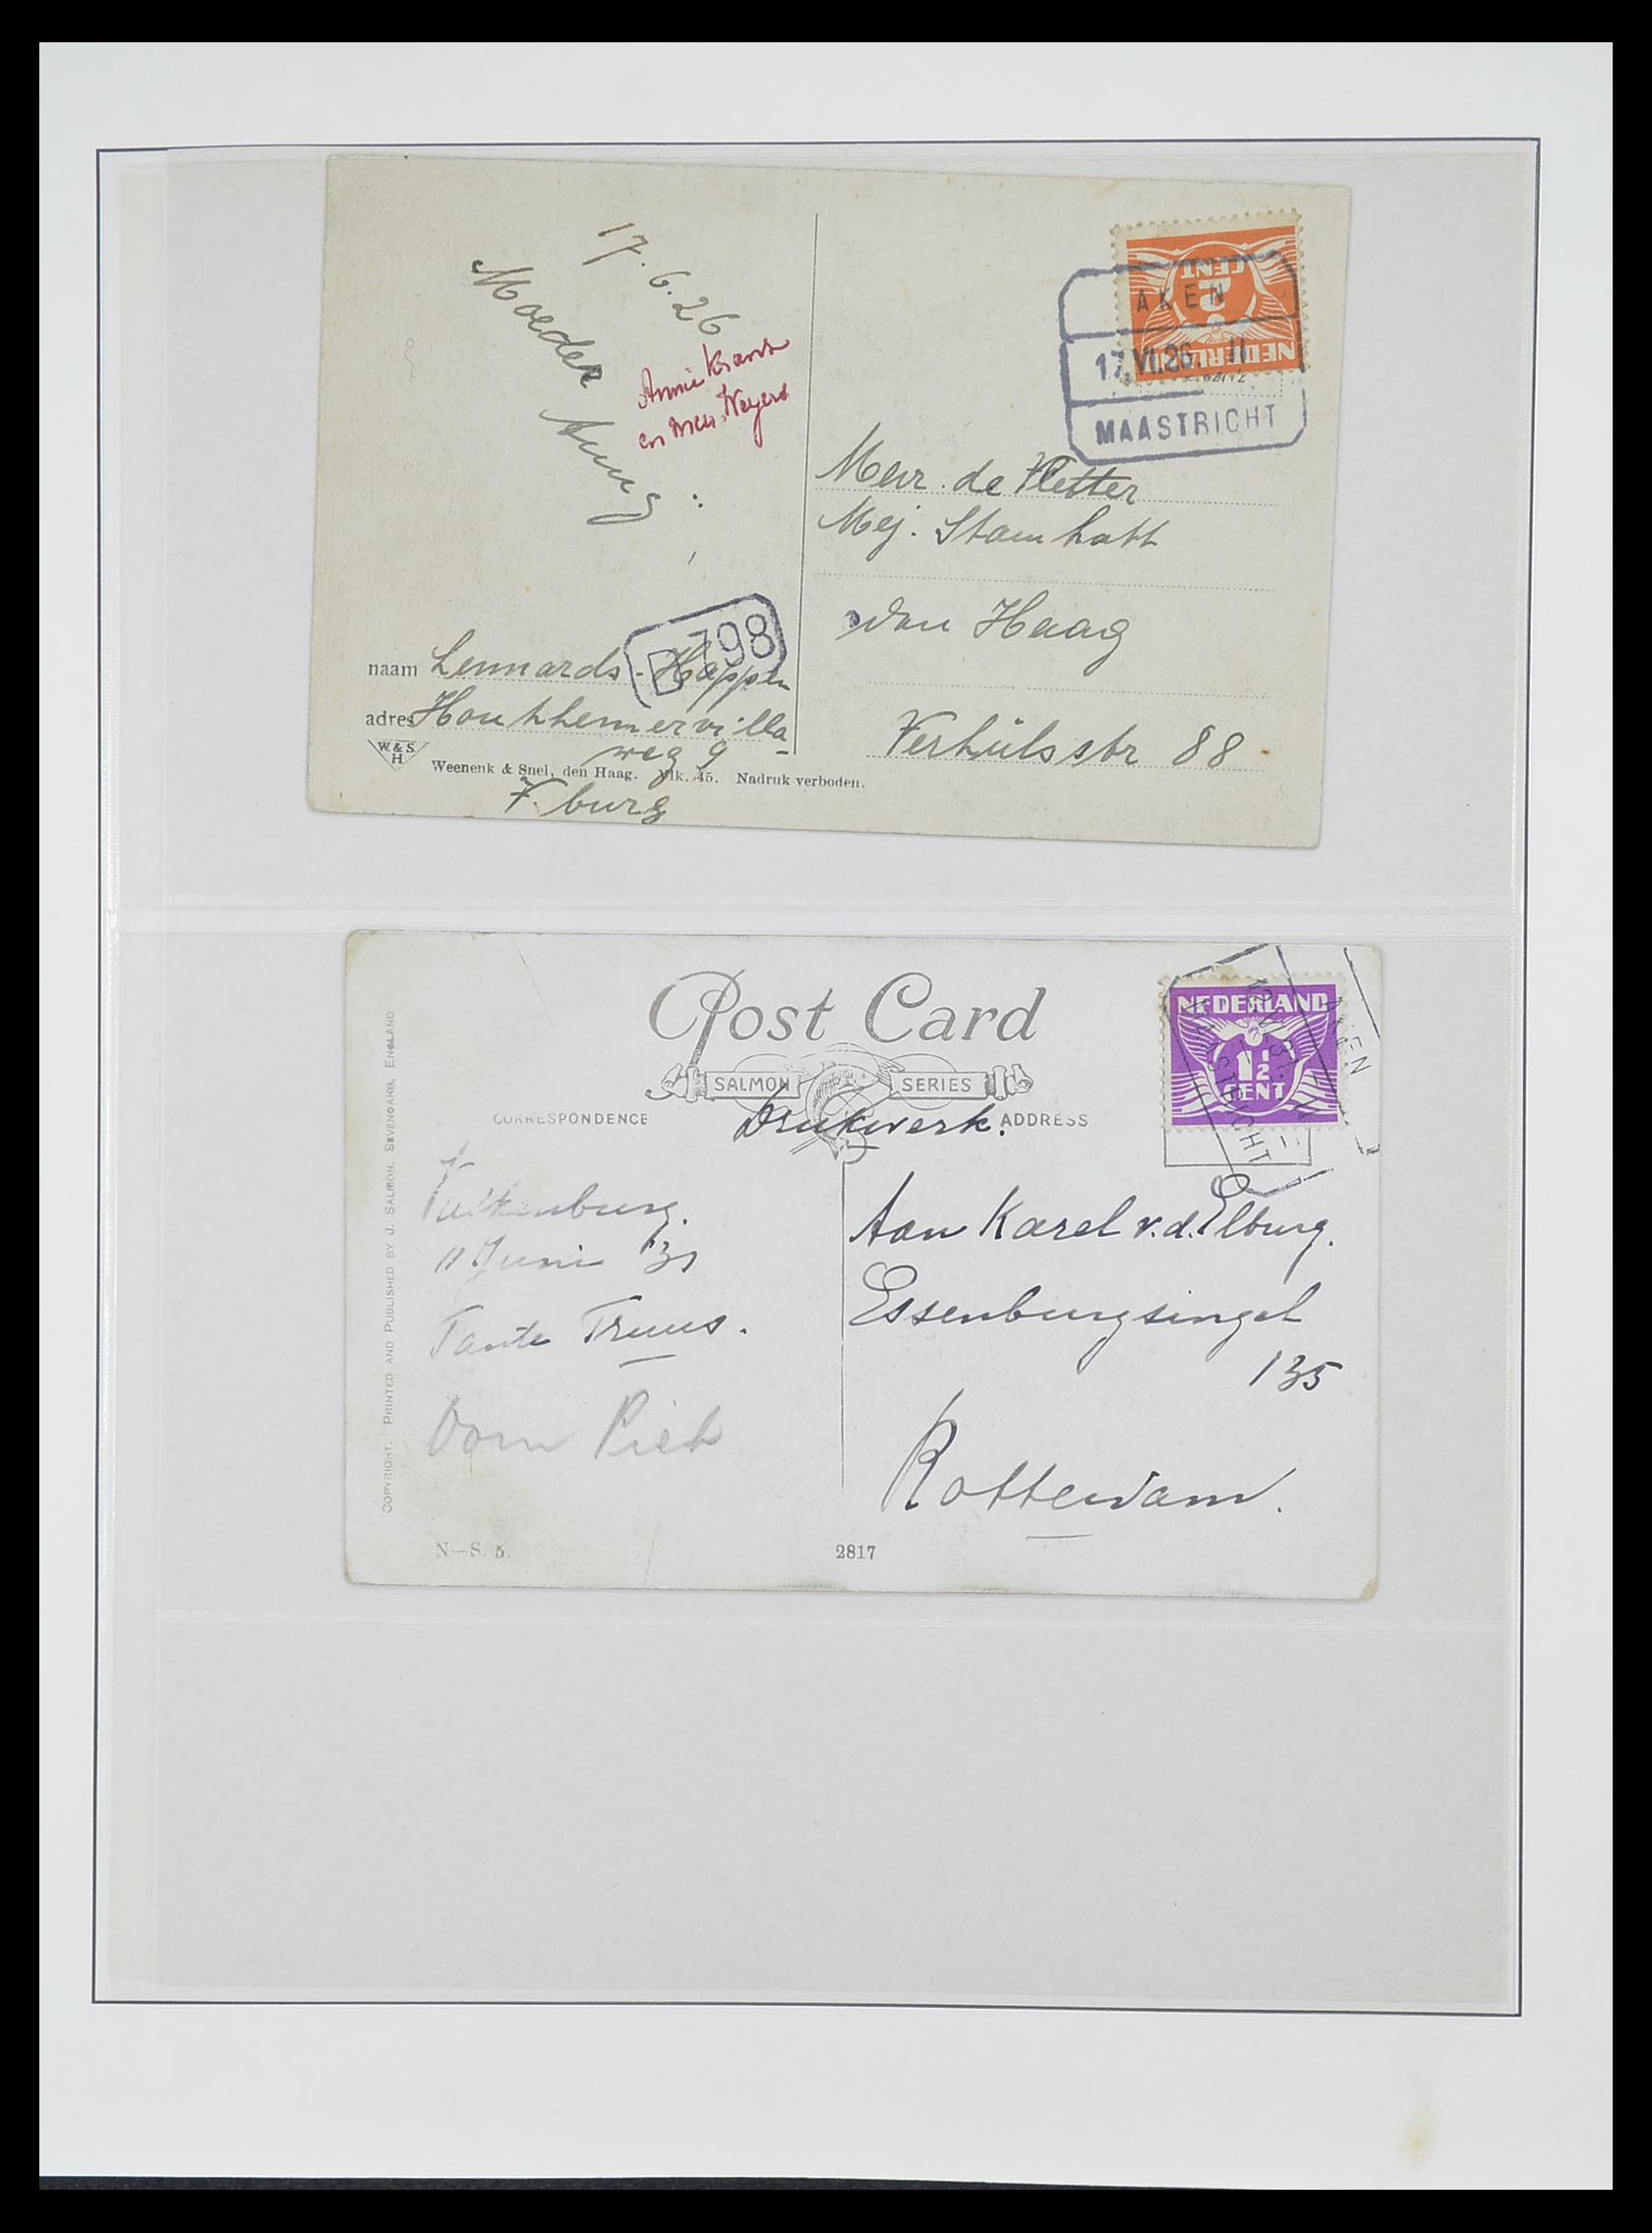 17.6.26
Moeder
Annie
en
naam Lennards - Happen
adres Houthhemervilla-
weg 9
V. burg
B 798
W. & S.
H
Weenenk & Snel, den Haag. Mk. 45. Nadruk verboden.
NEDERLAND
2
CENT
AKEN
17.VI.26. II
MAASTRICHT
Mevr. de Vletter
Mej. Stamhatt
den Haag
Verhülsstr 88
Post Card
SALMON SERIES
CORRESPONDENCE
Drukwerk.
ADDRESS
NEDERLAND
1½
CENT
AKEN
MAASTRICHT
COPYRIGHT. PRINTED AND PUBLISHED BY J. SALMON, SEVENOAKS, ENGLAND
Valkenburg.
11 Juni '31
Tante Truus.
Oom Piet
Aan Karel v.d. Elburg.
Essenburgsingel
135
Rotterdam.
N—S. 5.
2817